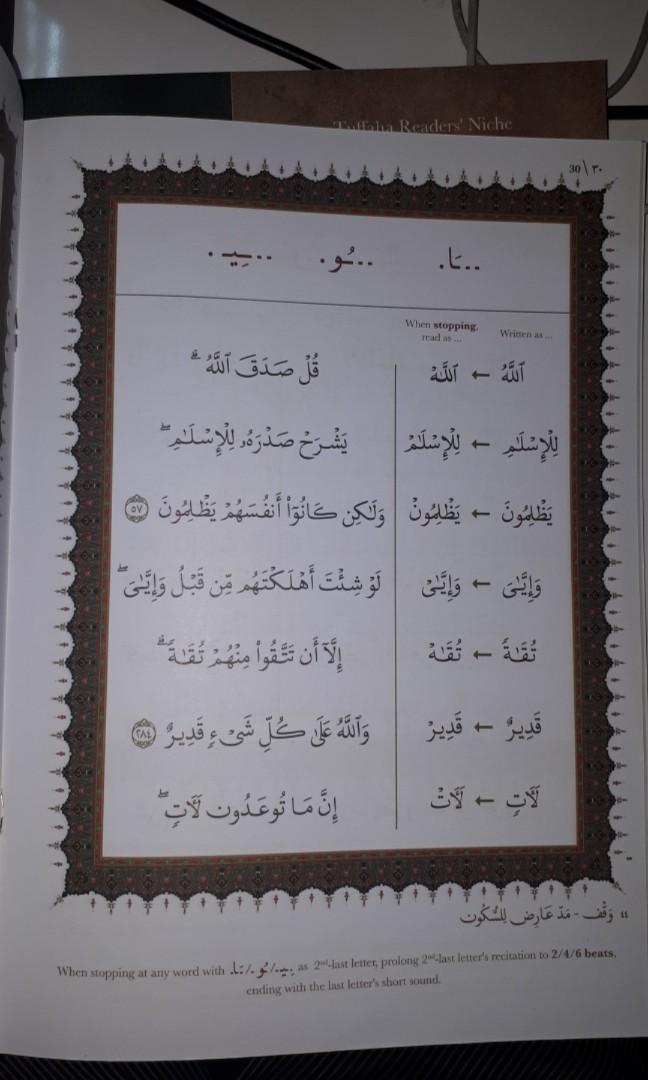 Tuffaha Readers' Niche
30 \ ٣٠
..ـَا. ..ـُو. ..ـِيـ.
Written as ...
When stopping, read as ...
ٱللَّهُ ← ٱللَّهْ قُلْ صَدَقَ ٱللَّهُ ۗ
لِلْإِسْلَـٰمِ ← لِلْإِسْلَـٰمْ يَشْرَحْ صَدْرَهُۥ لِلْإِسْلَـٰمِ ۖ
يَظْلِمُونَ ← يَظْلِمُونْ وَلَـٰكِن كَانُوٓا۟ أَنفُسَهُمْ يَظْلِمُونَ ٥٧
وَإِيَّـٰىَ ← وَإِيَّـٰىْ لَوْ شِئْتَ أَهْلَكْتَهُم مِّن قَبْلُ وَإِيَّـٰىَ ۖ
تُقَىٰةً ← تُقَىٰهْ إِلَّآ أَن تَتَّقُوا۟ مِنْهُمْ تُقَىٰةً ۗ
قَدِيرٌ ← قَدِيرْ وَٱللَّهُ عَلَىٰ كُلِّ شَىْءٍ قَدِيرٌ ٢٨٤
لَـَٔاتٍ ← لَـَٔاتْ إِنَّ مَا تُوعَدُونَ لَـَٔاتٍ ۖ
وَقْف - مَدّ عَارِض لِلسُّكُون
When stopping at any word with ـَا./ـُو./ـِيـ. as 2nd-last letter, prolong 2nd-last letter's recitation to 2/4/6 beats,
ending with the last letter's short sound.